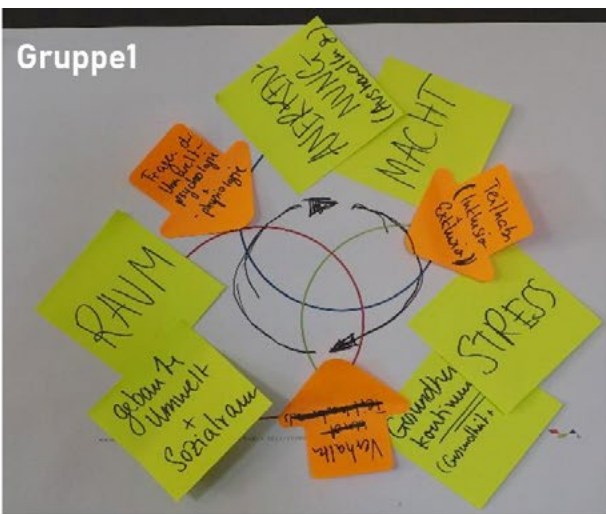 Gruppe1
ANERKEN-
NUNG
MACHT
Frage d.
Umwelt-
psychologie
+
physiologie
Teilhabe
(Inklusion
+
Exklusion)
RAUM
STRESS
gebaute
Umwelt
+
Sozialraum
Verhalten
kontinuum
(Gesundheit +